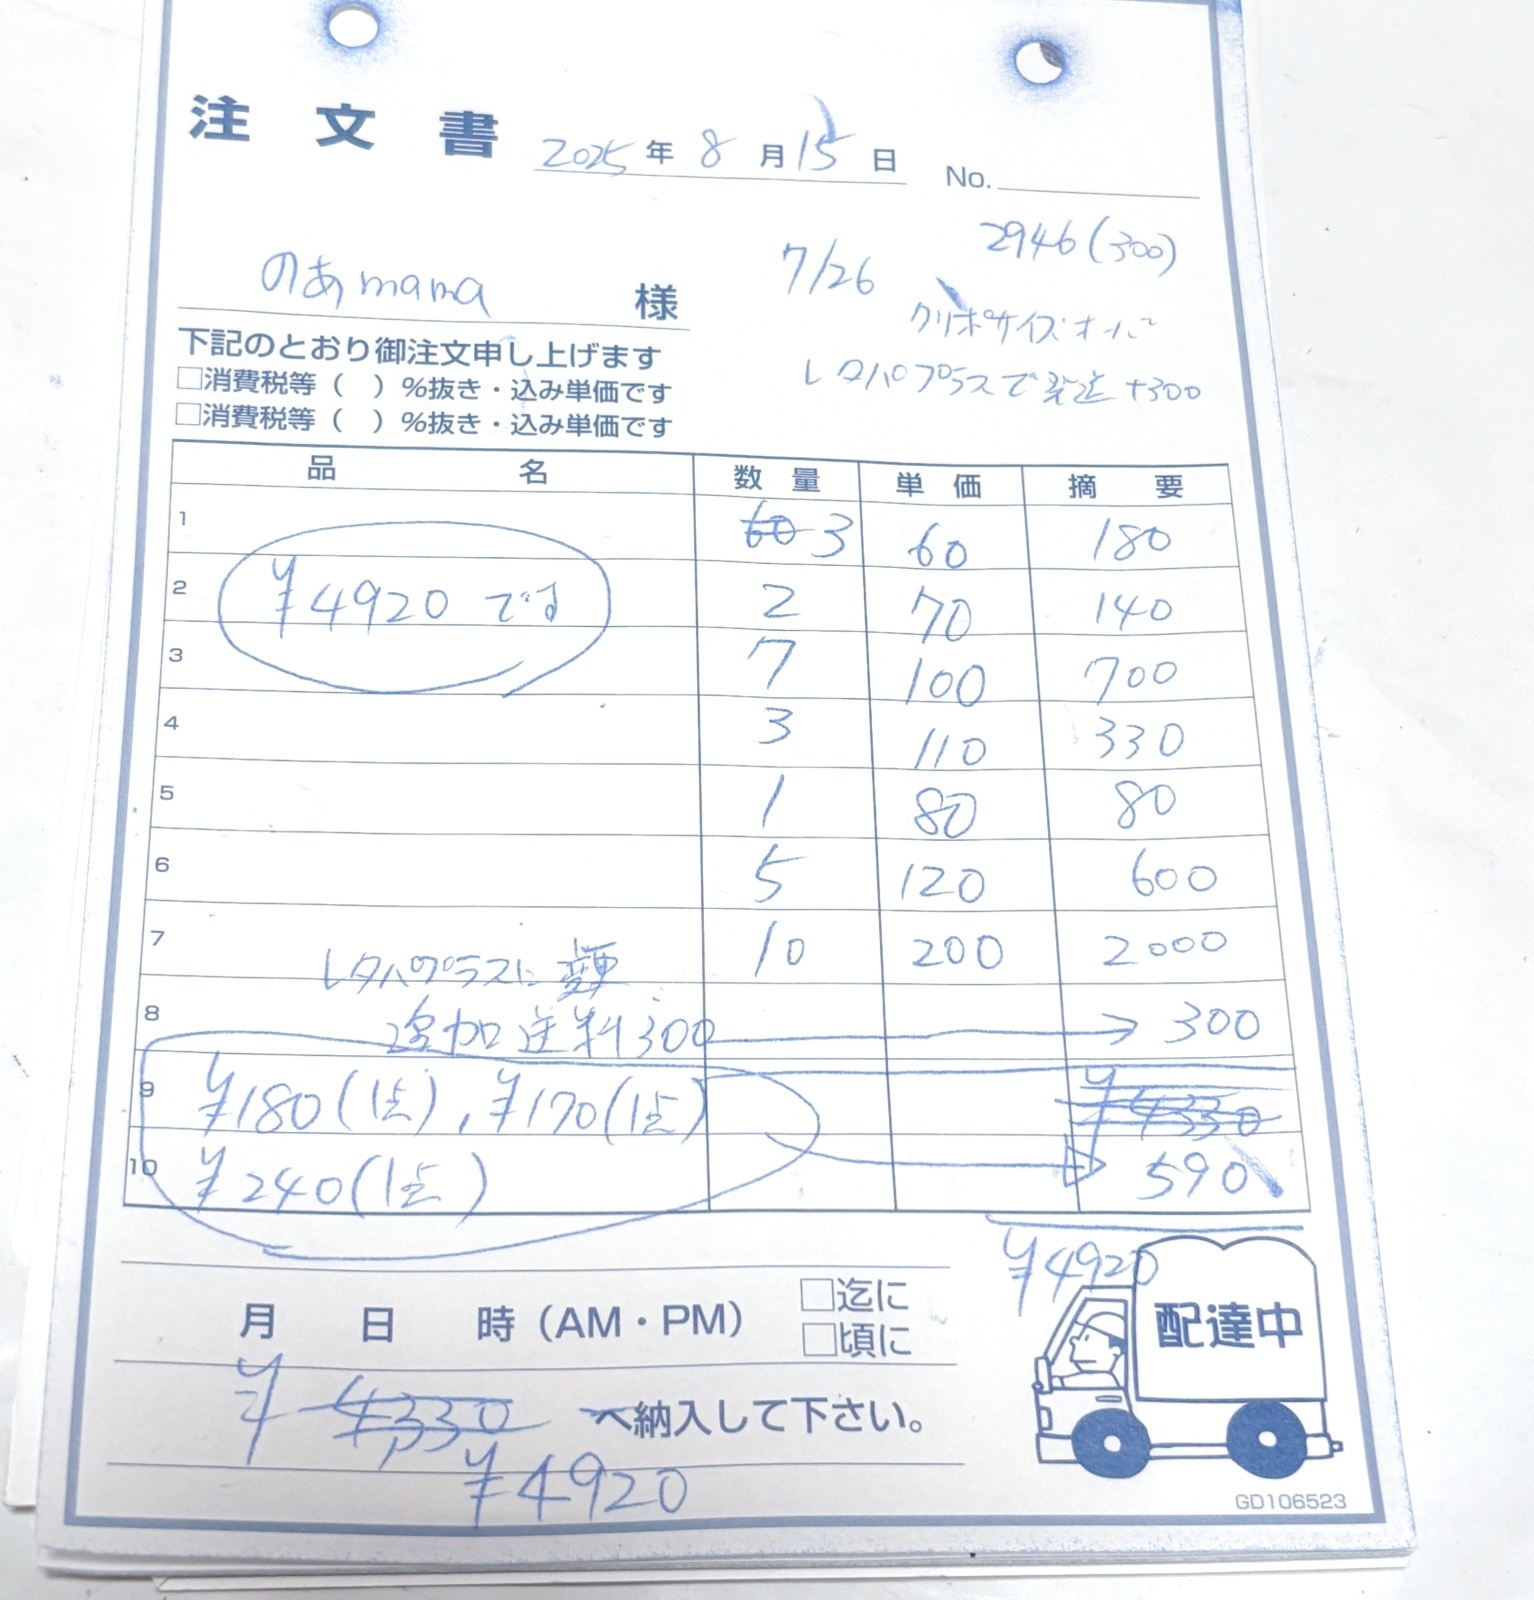 注文書 2025年 8月 15日 No.
2946(300)
7/26
のあmama 様
クリポサイズオーバー
レタパプラスで発送 +300
下記のとおり御注文申し上げます
□消費税等（ ）%抜き・込み単価です
□消費税等（ ）%抜き・込み単価です
品名 数量 単価 摘要
1 60 3 60 180
2 ¥4920 です 2 70 140
3 7 100 700
4 3 110 330
5 1 80 80
6 5 120 600
7 レタパプラスに変更 10 200 2000
8 追加送料300 → 300
9 ¥180(1点), ¥170(1点) ¥4330
10 ¥240(1点) 590
¥4920
月 日 時（AM・PM） □迄に
□頃に
配達中
¥4,330 へ納入して下さい。
¥4920
GD106523